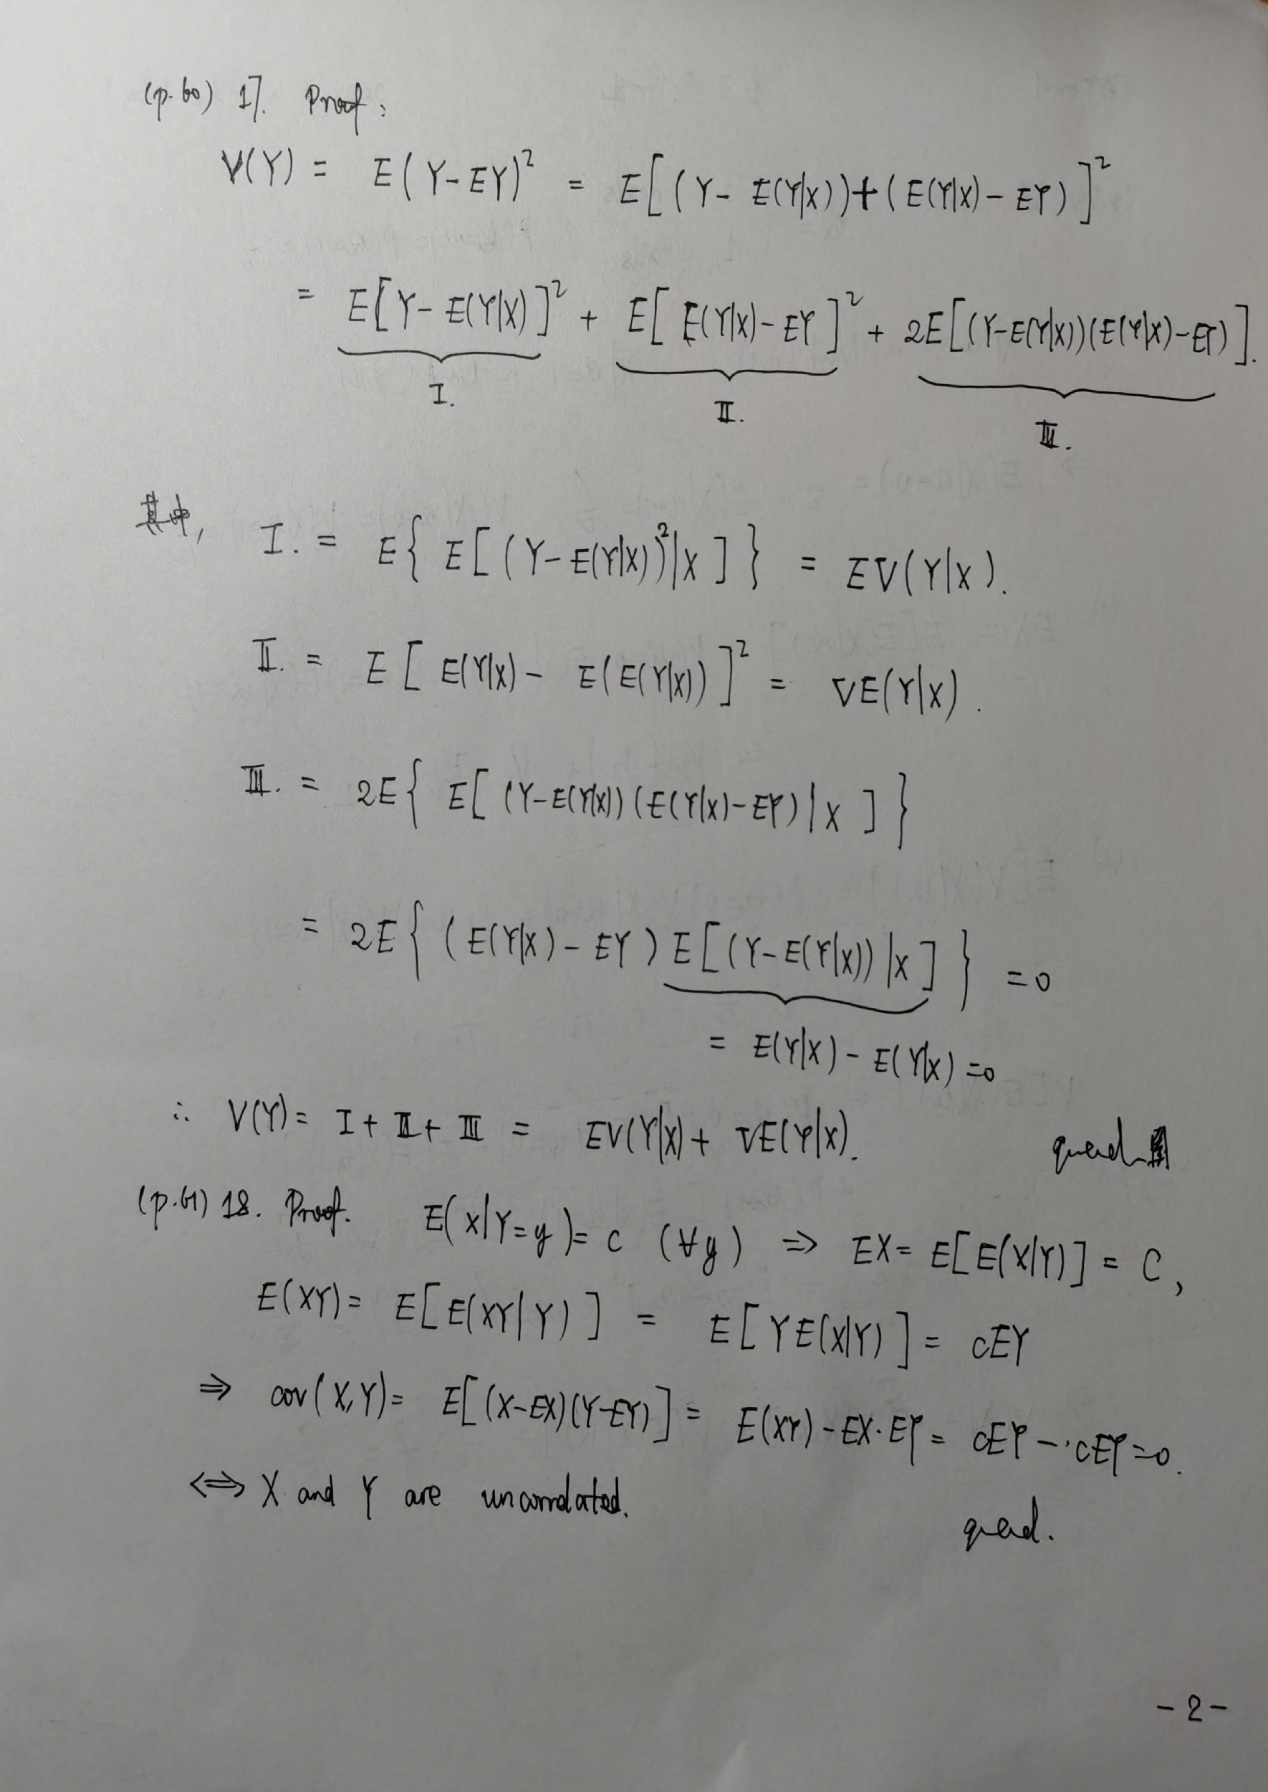 (p.60) 17. Proof:
V(Y) = E(Y-EY)² = E[(Y-E(Y|X))+(E(Y|X)-EY)]²
= E[Y-E(Y|X)]² + E[E(Y|X)-EY]² + 2E[(Y-E(Y|X))(E(Y|X)-EY)].
I. II. III.
其中, I. = E{E[(Y-E(Y|X))²|X]} = EV(Y|X).
II. = E[E(Y|X)-E(E(Y|X))]² = VE(Y|X).
III. = 2E{E[(Y-E(Y|X))(E(Y|X)-EY)|X]}
= 2E{(E(Y|X)-EY)E[(Y-E(Y|X))|X]} =0
= E(Y|X)-E(Y|X)=0
∴ V(Y)= I+II+III = EV(Y|X)+VE(Y|X).
(p.61) 18. Proof. E(X|Y=y)=c (∀y) ⇒ EX=E[E(X|Y)]=C,
E(XY)= E[E(XY|Y)] = E[YE(X|Y)]= cEY
⇒ cov(X,Y)= E[(X-EX)(Y-EY)]= E(XY)-EX·EY= cEY-cEY=0.
⇔ X and Y are uncorrelated.
- 2 -